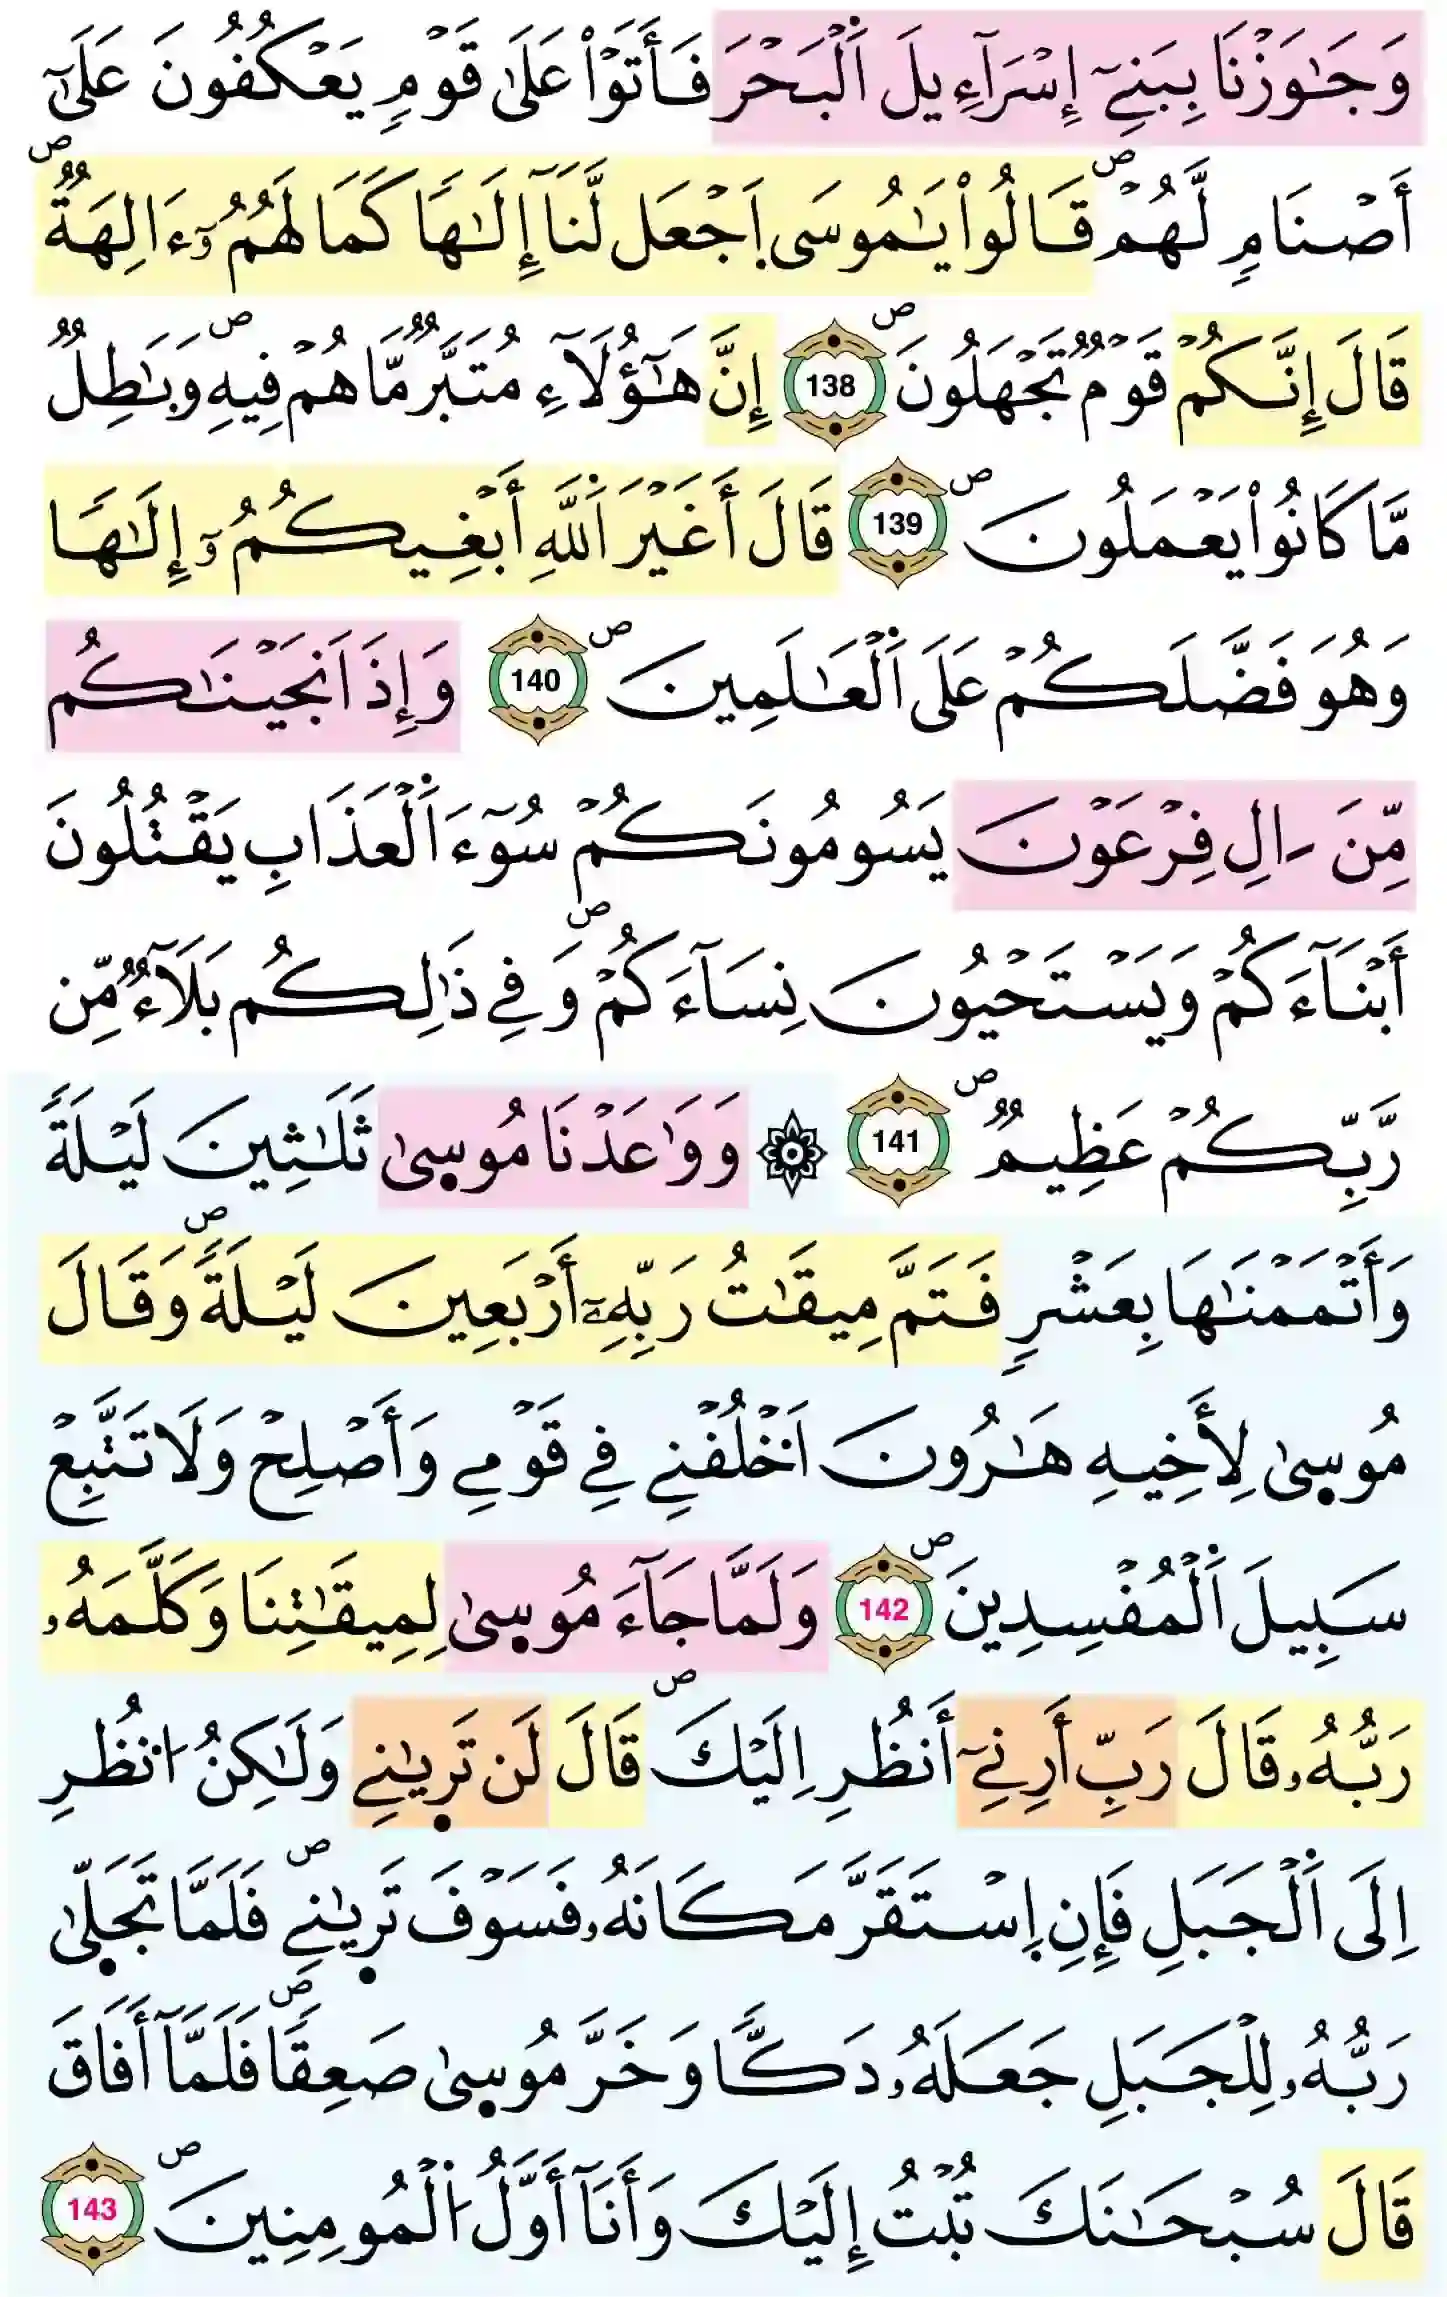 وَجَٰوَزْنَا بِبَنِےٓ إِسْرَآءِيلَ اَ۬لْبَحْرَ فَأَتَوْاْ عَلَىٰ قَوْمٖ يَعْكُفُونَ عَلَىٰٓ
أَصْنَامٖ لَّهُمْۖ قَالُواْ يَٰمُوسَى اَ۪جْعَل لَّنَآ إِلَٰهاٗ كَمَا لَهُمُۥٓ ءَالِهَةٞۖ
قَالَ إِنَّكُمْ قَوْمٞ تَجْهَلُونَۖ 138 إِنَّ هَٰٓؤُلَآءِ مُتَبَّرٞ مَّا هُمْ فِيهِۖ وَبَٰطِلٞ
مَّا كَانُواْ يَعْمَلُونَۖ 139 قَالَ أَغَيْرَ اَ۬للَّهِ أَبْغِيكُمُۥٓ إِلَٰهاٗ
وَهُوَ فَضَّلَكُمْ عَلَى اَ۬لْعَٰلَمِينَۖ 140 وَإِذَ اَنجَيْنَٰكُم
مِّنَ اٰلِ فِرْعَوْنَ يَسُومُونَكُمْ سُوٓءَ اَ۬لْعَذَابِ يَقْتُلُونَ
أَبْنَآءَكُمْ وَيَسْتَحْيُونَ نِسَآءَكُمْۖ وَفِے ذَٰلِكُم بَلَآءٞ مِّن
رَّبِّكُمْ عَظِيمٞۖ 141 ۞ وَوَٰعَدْنَا مُوس۪يٰ ثَلَٰثِينَ لَيْلَةٗ
وَأَتْمَمْنَٰهَا بِعَشْرٖ فَتَمَّ مِيقَٰتُ رَبِّهِۦٓ أَرْبَعِينَ لَيْلَةٗۖ وَقَالَ
مُوس۪يٰ لِأَخِيهِ هَٰرُونَ اَ۟خْلُفْنِے فِے قَوْمِے وَأَصْلِحْ وَلَا تَتَّبِعْ
سَبِيلَ اَ۬لْمُفْسِدِينَۖ 142 وَلَمَّا جَآءَ مُوس۪يٰ لِمِيقَٰتِنَا وَكَلَّمَهُۥ
رَبُّهُۥ قَالَ رَبِّ أَرِنِےٓ أَنظُرِ اِلَيْكَۖ قَالَ لَن تَر۪يٰنِے وَلَٰكِنُ اُ۟نظُرِ
اِلَى اَ۬لْجَبَلِ فَإِنِ اِ۪سْتَقَرَّ مَكَانَهُۥ فَسَوْفَ تَر۪يٰنِےۖ فَلَمَّا تَجَلّ۪يٰ
رَبُّهُۥ لِلْجَبَلِ جَعَلَهُۥ دَكّاٗ وَخَرَّ مُوس۪يٰ صَعِقاٗۖ فَلَمَّآ أَفَاقَ
قَالَ سُبْحَٰنَكَ تُبْتُ إِلَيْكَ وَأَنَآ أَوَّلُ اُ۬لْمُومِنِينَۖ 143